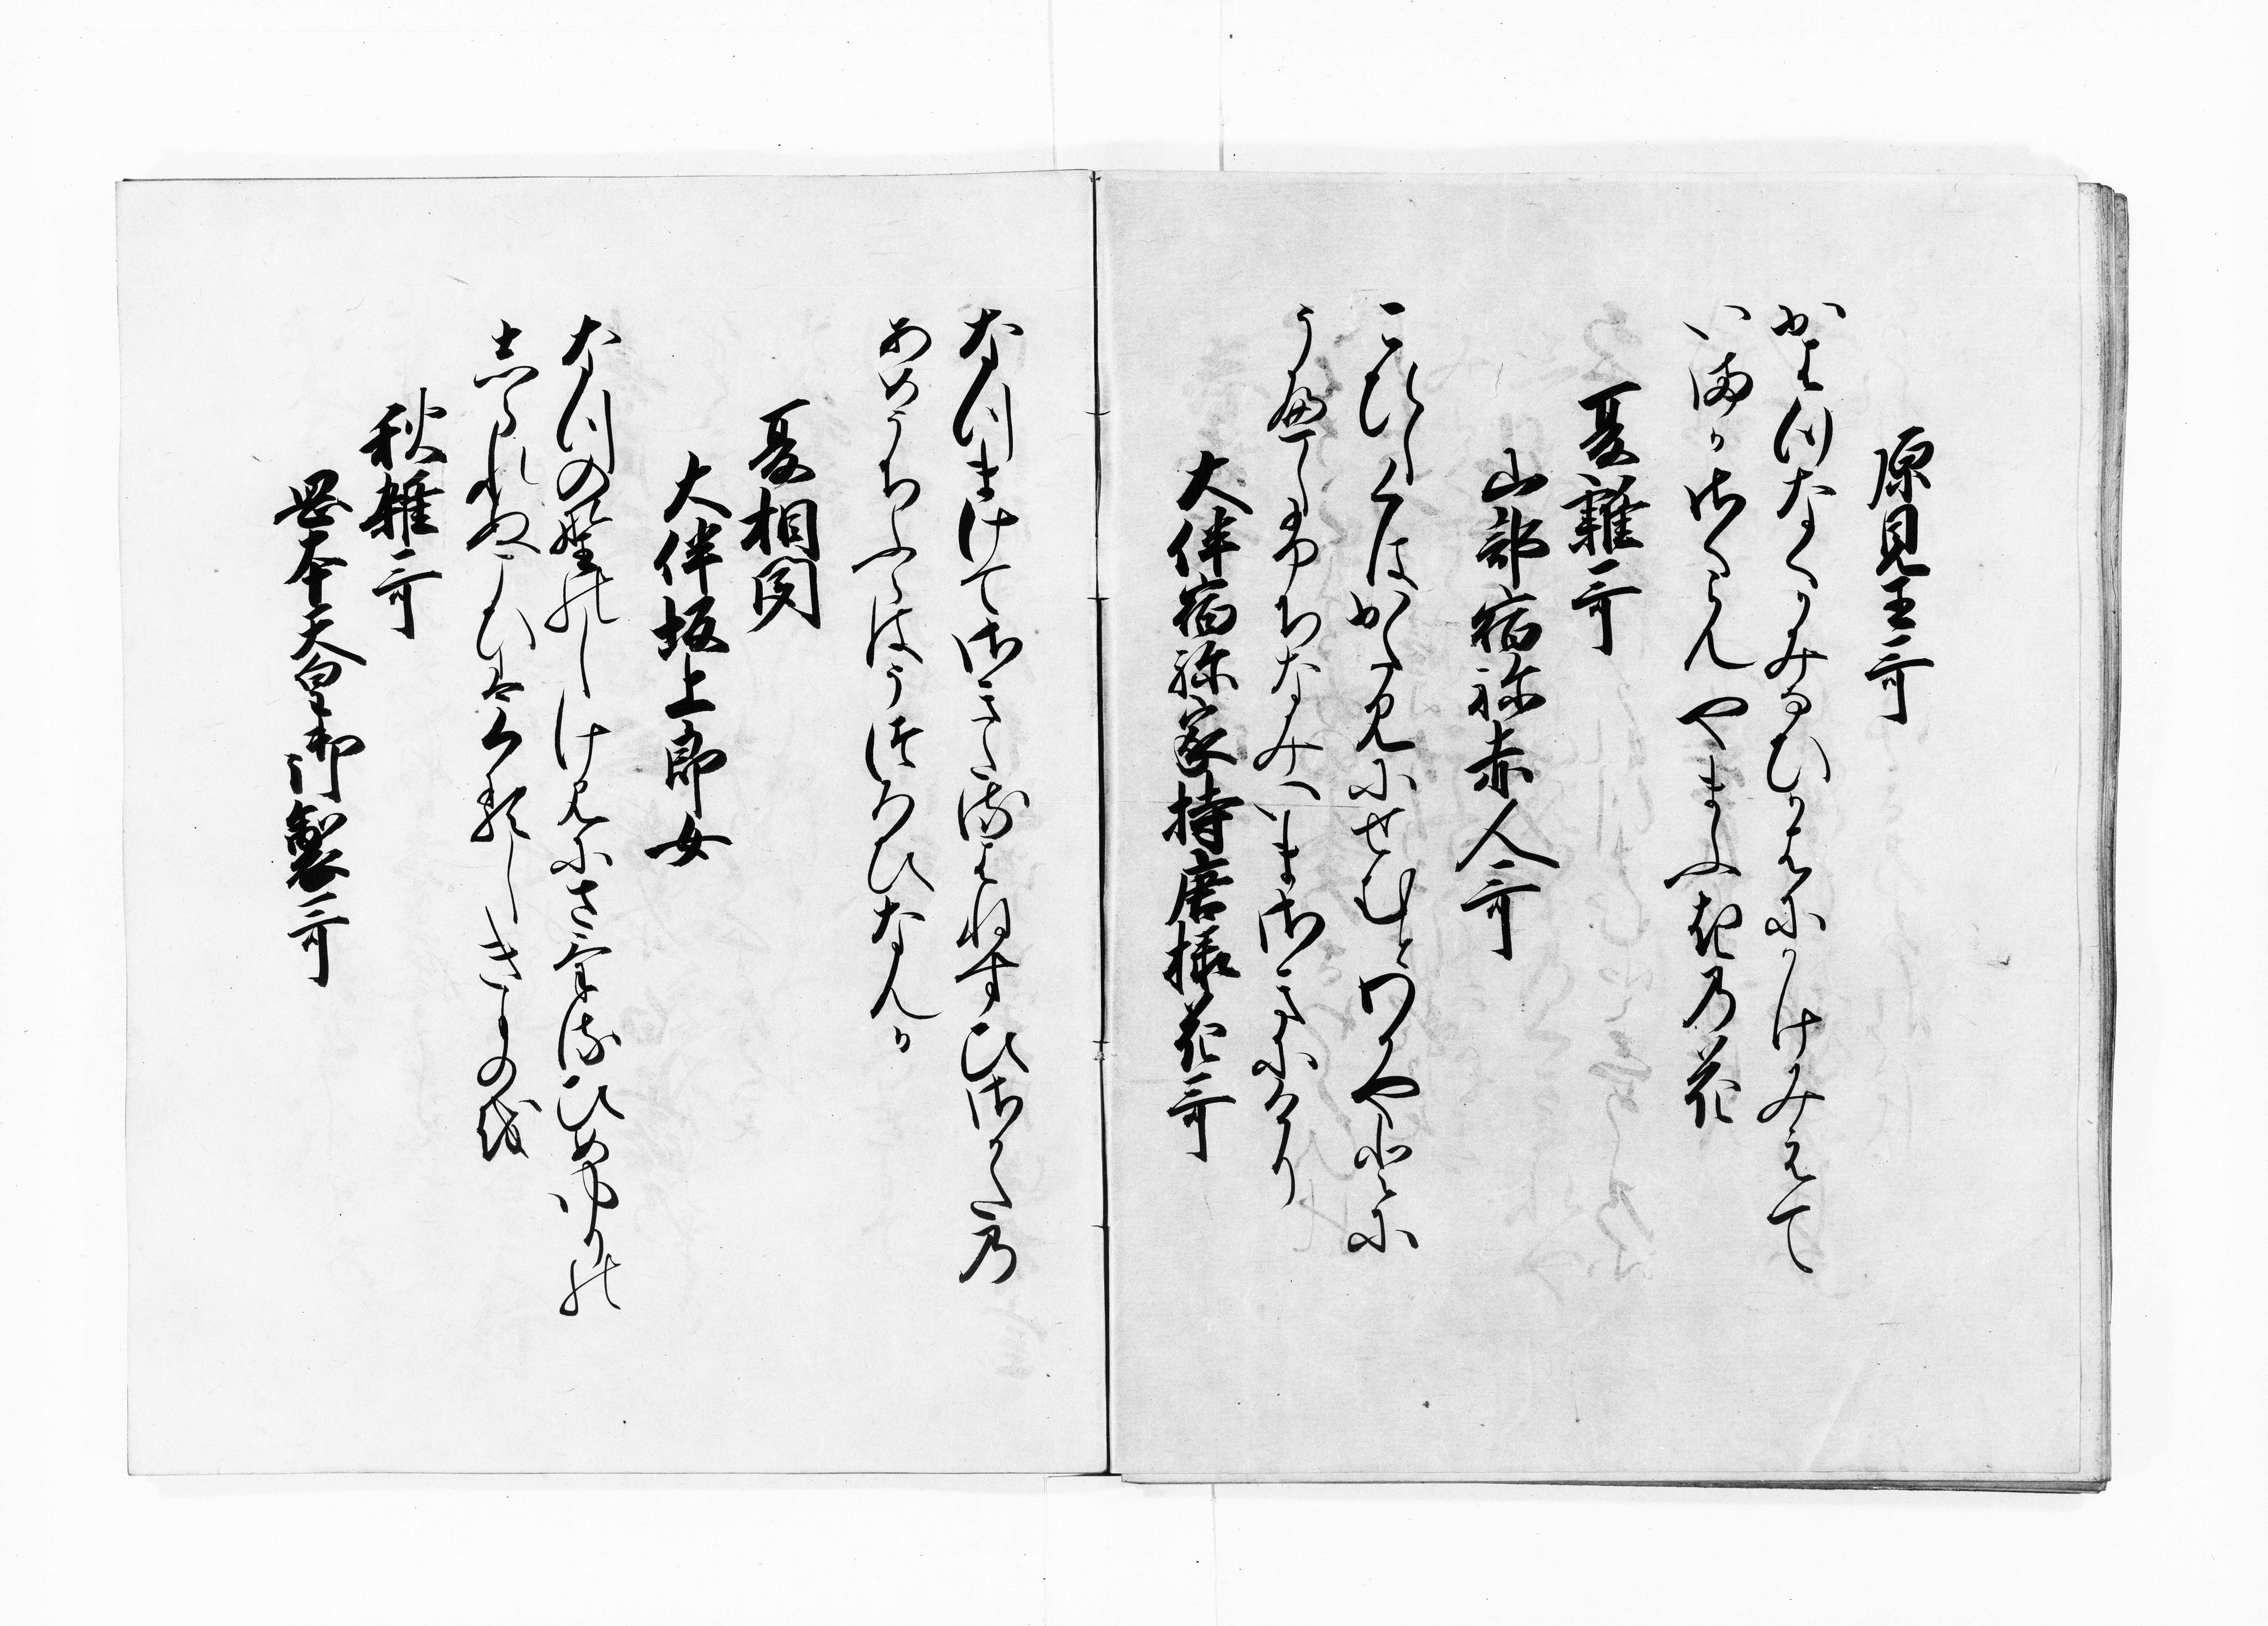 原見王哥
かはつなくかみなひかはにかけみえて
いまかさくらんやまふきの花
夏雜哥
山部宿祢赤人哥
こひしくはかたみにせむとわかやとに
うへしふちなみいまさきにけり
大伴宿祢家持唐棣花哥
なつまけてさきたるはねすひさかたの
あめうちふらはうつろひなんか
夏相聞
大伴坂上郎女
なつの野のしけみにさける ひめゆりの
しられぬこひはくるしきものを
秋雜哥
罡本天皇御製哥